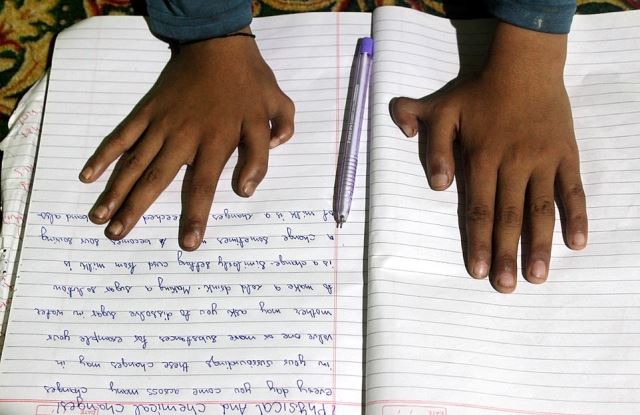 PHYSICAL And CHEMICAL CHANGES!
every day you come across many changes
in your surroundings these changes may in
volve one or more substances for example your
mother may ask you to dissolve sugar in water
to make a cold drink. Making a sugar solution
is a change. Similarly setting curd from milk is
a change sometimes becomes sour souring
of milk is a changes also